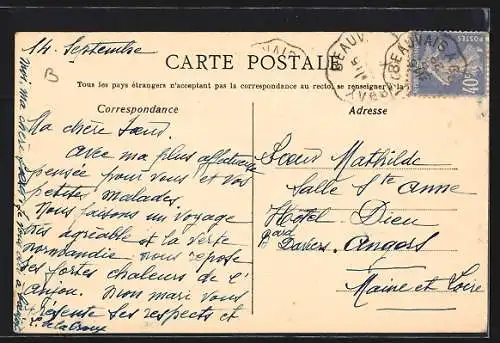 14 Septembre
CARTE POSTALE
Tous les pays étrangers n'acceptant pas la correspondance au recto, se renseigner à la
Correspondance
Adresse
B
Ma chère Sœur.
Avec ma plus affectueuse
pensée pour vous et vos
petits malades.
Nous faisons un voyage
très agréable et la verte
normandie nous repose
des fortes chaleurs de l'
Anjou. Mon mari vous
présente ses respects et
Sœur Mathilde
Salle Ste Anne
Hôtel Dieu
Bard Davers. Angers
Maine et Loire
BEAUVAIS
POSTES